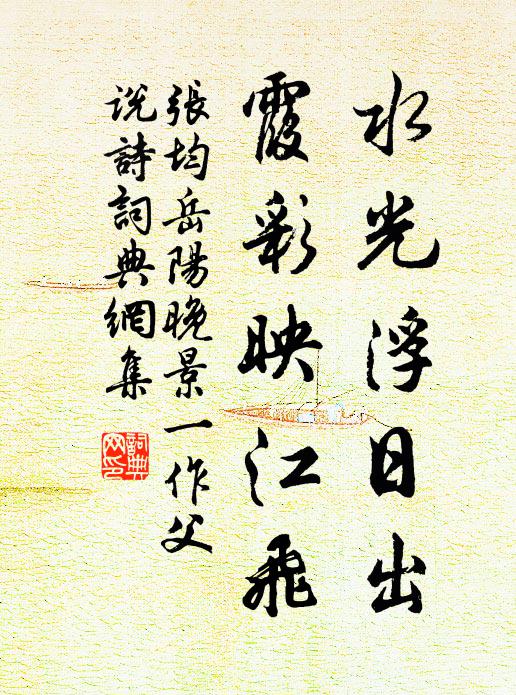 水光浮日出
霞彩映江飛
張均岳陽晚景一作父
説詩詞典網集
詞典網印